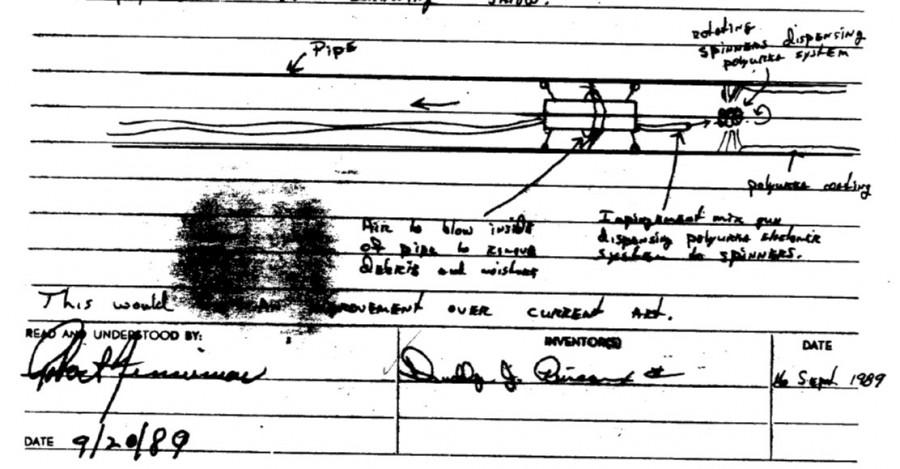 Pipe
rotating
spinners dispensing
polyurea system
polyurea coating
Air to blow inside
of pipe to remove
debris and moisture
Impingement mix gun
dispensing polyurea elastomer
system to spinners.
This would AN IMPROVEMENT OVER CURRENT ART.
READ AND UNDERSTOOD BY:
INVENTOR(S)
DATE
Dudley J.
16 Sept 1989
DATE 9/20/89